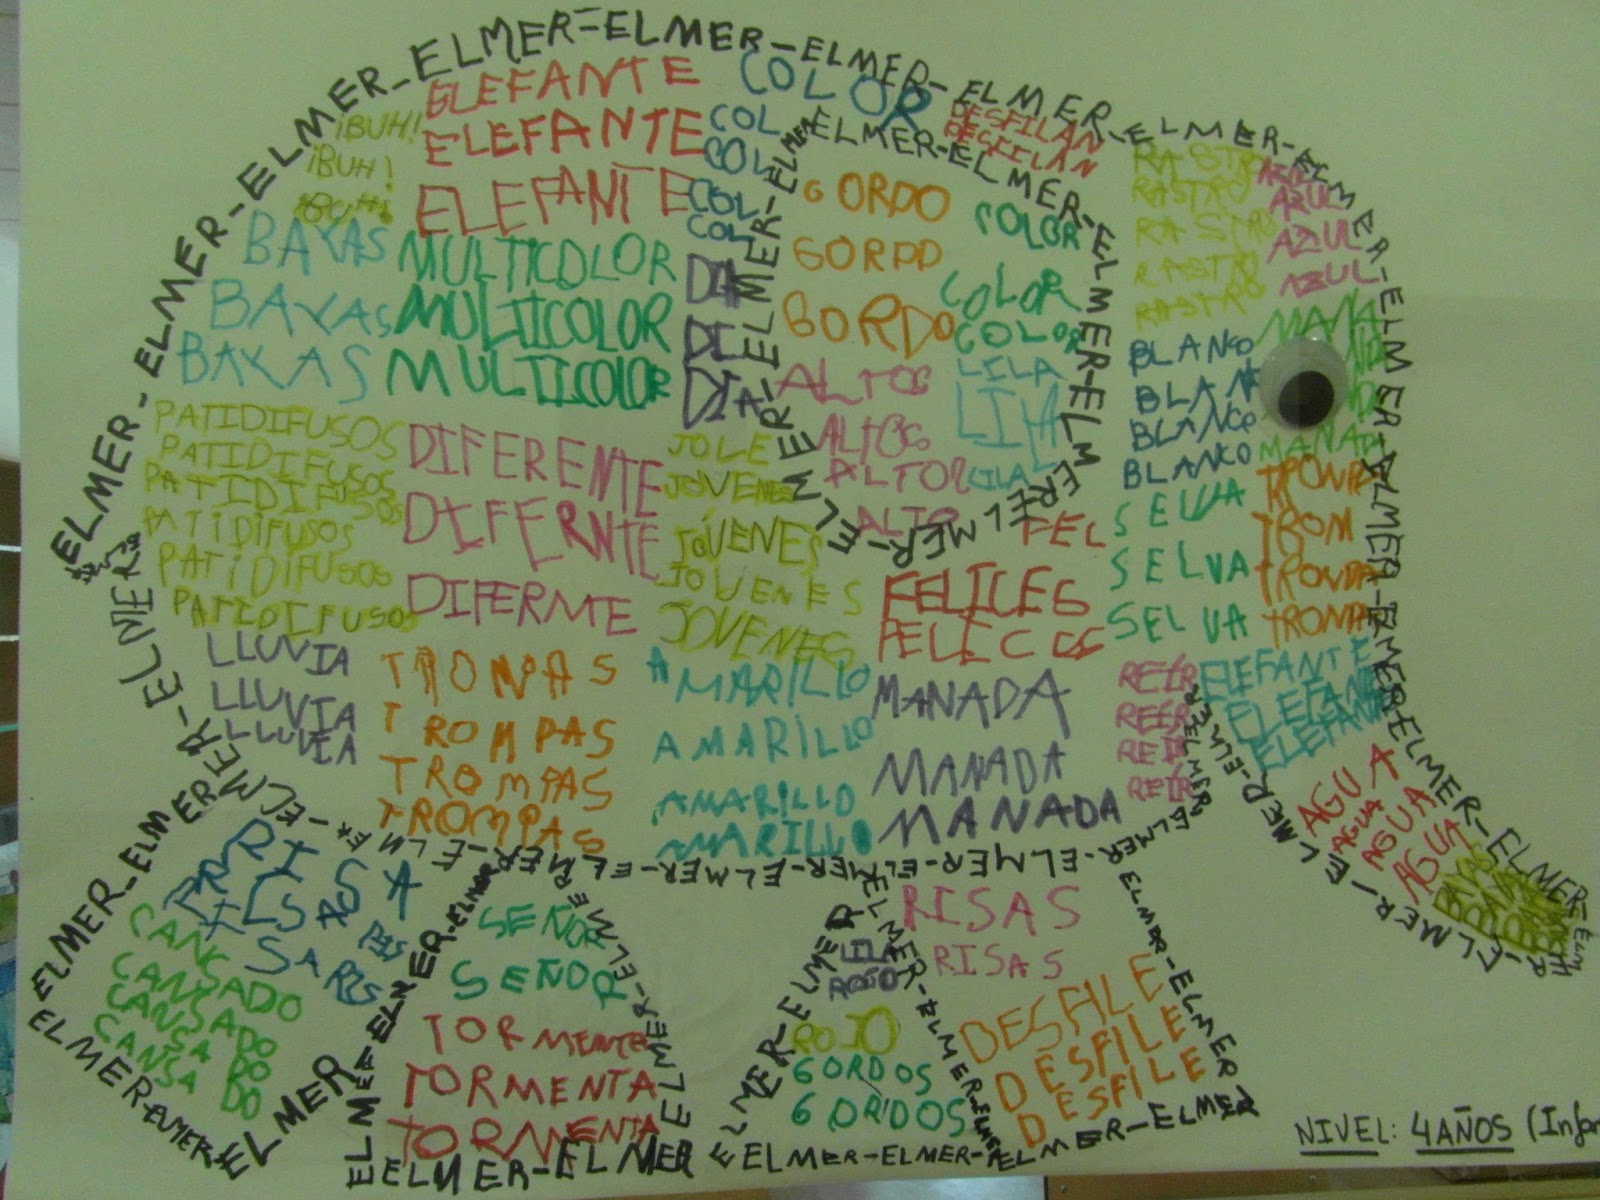 ELMER-ELMER-ELMER-ELMER-ELMER-ELMER-ELMER-ELMER-ELMER-ELMER-ELMER
ELEFANTE
ELEFANTE
ELEFANTE
¡BUH!
¡BUH!
¡BUH!
COLOR
COL
COL
COL
COL
DESFILAN
DESFILAN
ELMER-ELMER-ELMER-ELMER-ELMER-ELM
RASTRO
RASTRO
RASTRO
RASTRO
RASTRO
AZUL
AZUL
AZUL
AZUL
BAYAS
BAYAS
BAYAS
MULTICOLOR
MULTICOLOR
MULTICOLOR
DIA
DI
DIA
GORDO
GORDO
GORDO
COLOR
COLOR
COLOR
ALTOS
ALTOS
ALTOR
ALTO
LILA
LILA
LILA
BLANCO
BLAN
BLANCO
BLANCO
MANA
MANA
PATIDIFUSOS
PATIDIFUSOS
PATIDIFUSOS
PATIDIFUSOS
PATIDIFUSOS
PATIDIFUSOS
DIFERENTE
DIFERNTE
DIFERMTE
JOLE
JOVENES
JÓVENES
JOVENES
JOVENES
FEL
FELICES
FELICES
SELVA
SELVA
SELVA
TROMPA
TROM
TROMPA
TROMPA
LLUVIA
LLUVIA
LLUVIA
TROMPAS
TROMPAS
TROMPAS
TROMPAS
AMARILLO
AMARILLO
AMARILLO
AMARILLO
MANADA
MANADA
MANADA
REÍR
REÍR
REÍR
REÍR
ELEFANTE
ELEFANTE
ELEFANTE
AGUA
AGUA
AGUA
AGUA
RISA
CANSADO
CANSADO
CANSADO
CANSADO
SEÑOR
SEÑOR
TORMENTA
TORMENTA
TORMENTA
ROJO
GORDOS
GORDOS
RISAS
RISAS
DESFILE
DESFILE
DESFILE
ELMER-ELMER
ELMER-ELMER-ELMER-ELMER
NIVEL: 4 AÑOS (Infan